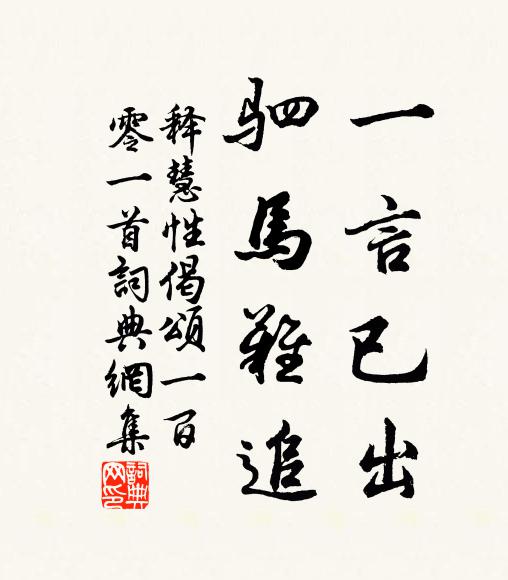 一言已出
驷馬難追
释慧性偈頌一百
零一首詞典網集
詞典網印